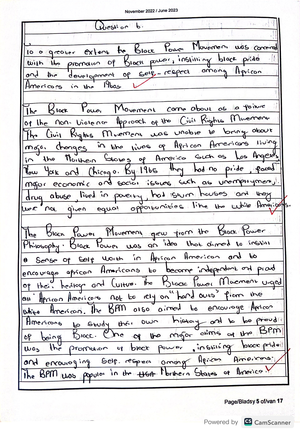 November 2022 / June 2023
Question 6.
To a greater extent the Black Power Movement was concerned
with the promotion of Black power, instilling black pride
and the development of self-respect among African
Americans in the
The Black Power Movement came about as a failure
of the non violence Approach of the Civil Rights Movement
The Civil Rights Movement was unable to bring about
major changes in the lives of African Americans living
in the Northern States of America such as Los Angeles
New York and Chicago. By 1965 they had no pride, faced
major economic and social issues such as unemployment,
drug abuse lived in poverty, had slum houses and they
were not given equal opportunities like the white Americans.
The Black Power Movement grew from the Black Power
Philosophy. Black Power was an idea that aimed to
a sense of self worth in African American and to
encourage african Americans to become independent and proud
of their heritage and Culture. The Black Power Movement urged
African Americans not to rely on "hand outs" from the
white American. The BPM also aimed to encourage African
Americans to study their own history and to be proud
of being Black. One of the major aims of the BPM
was the promotion of black power, instilling black pride
and encouraging self-respect among African Americans.
The BPM was popular in the Northern States of America.
Page/Bladsy 5 of/van 17
Powered by CS CamScanner